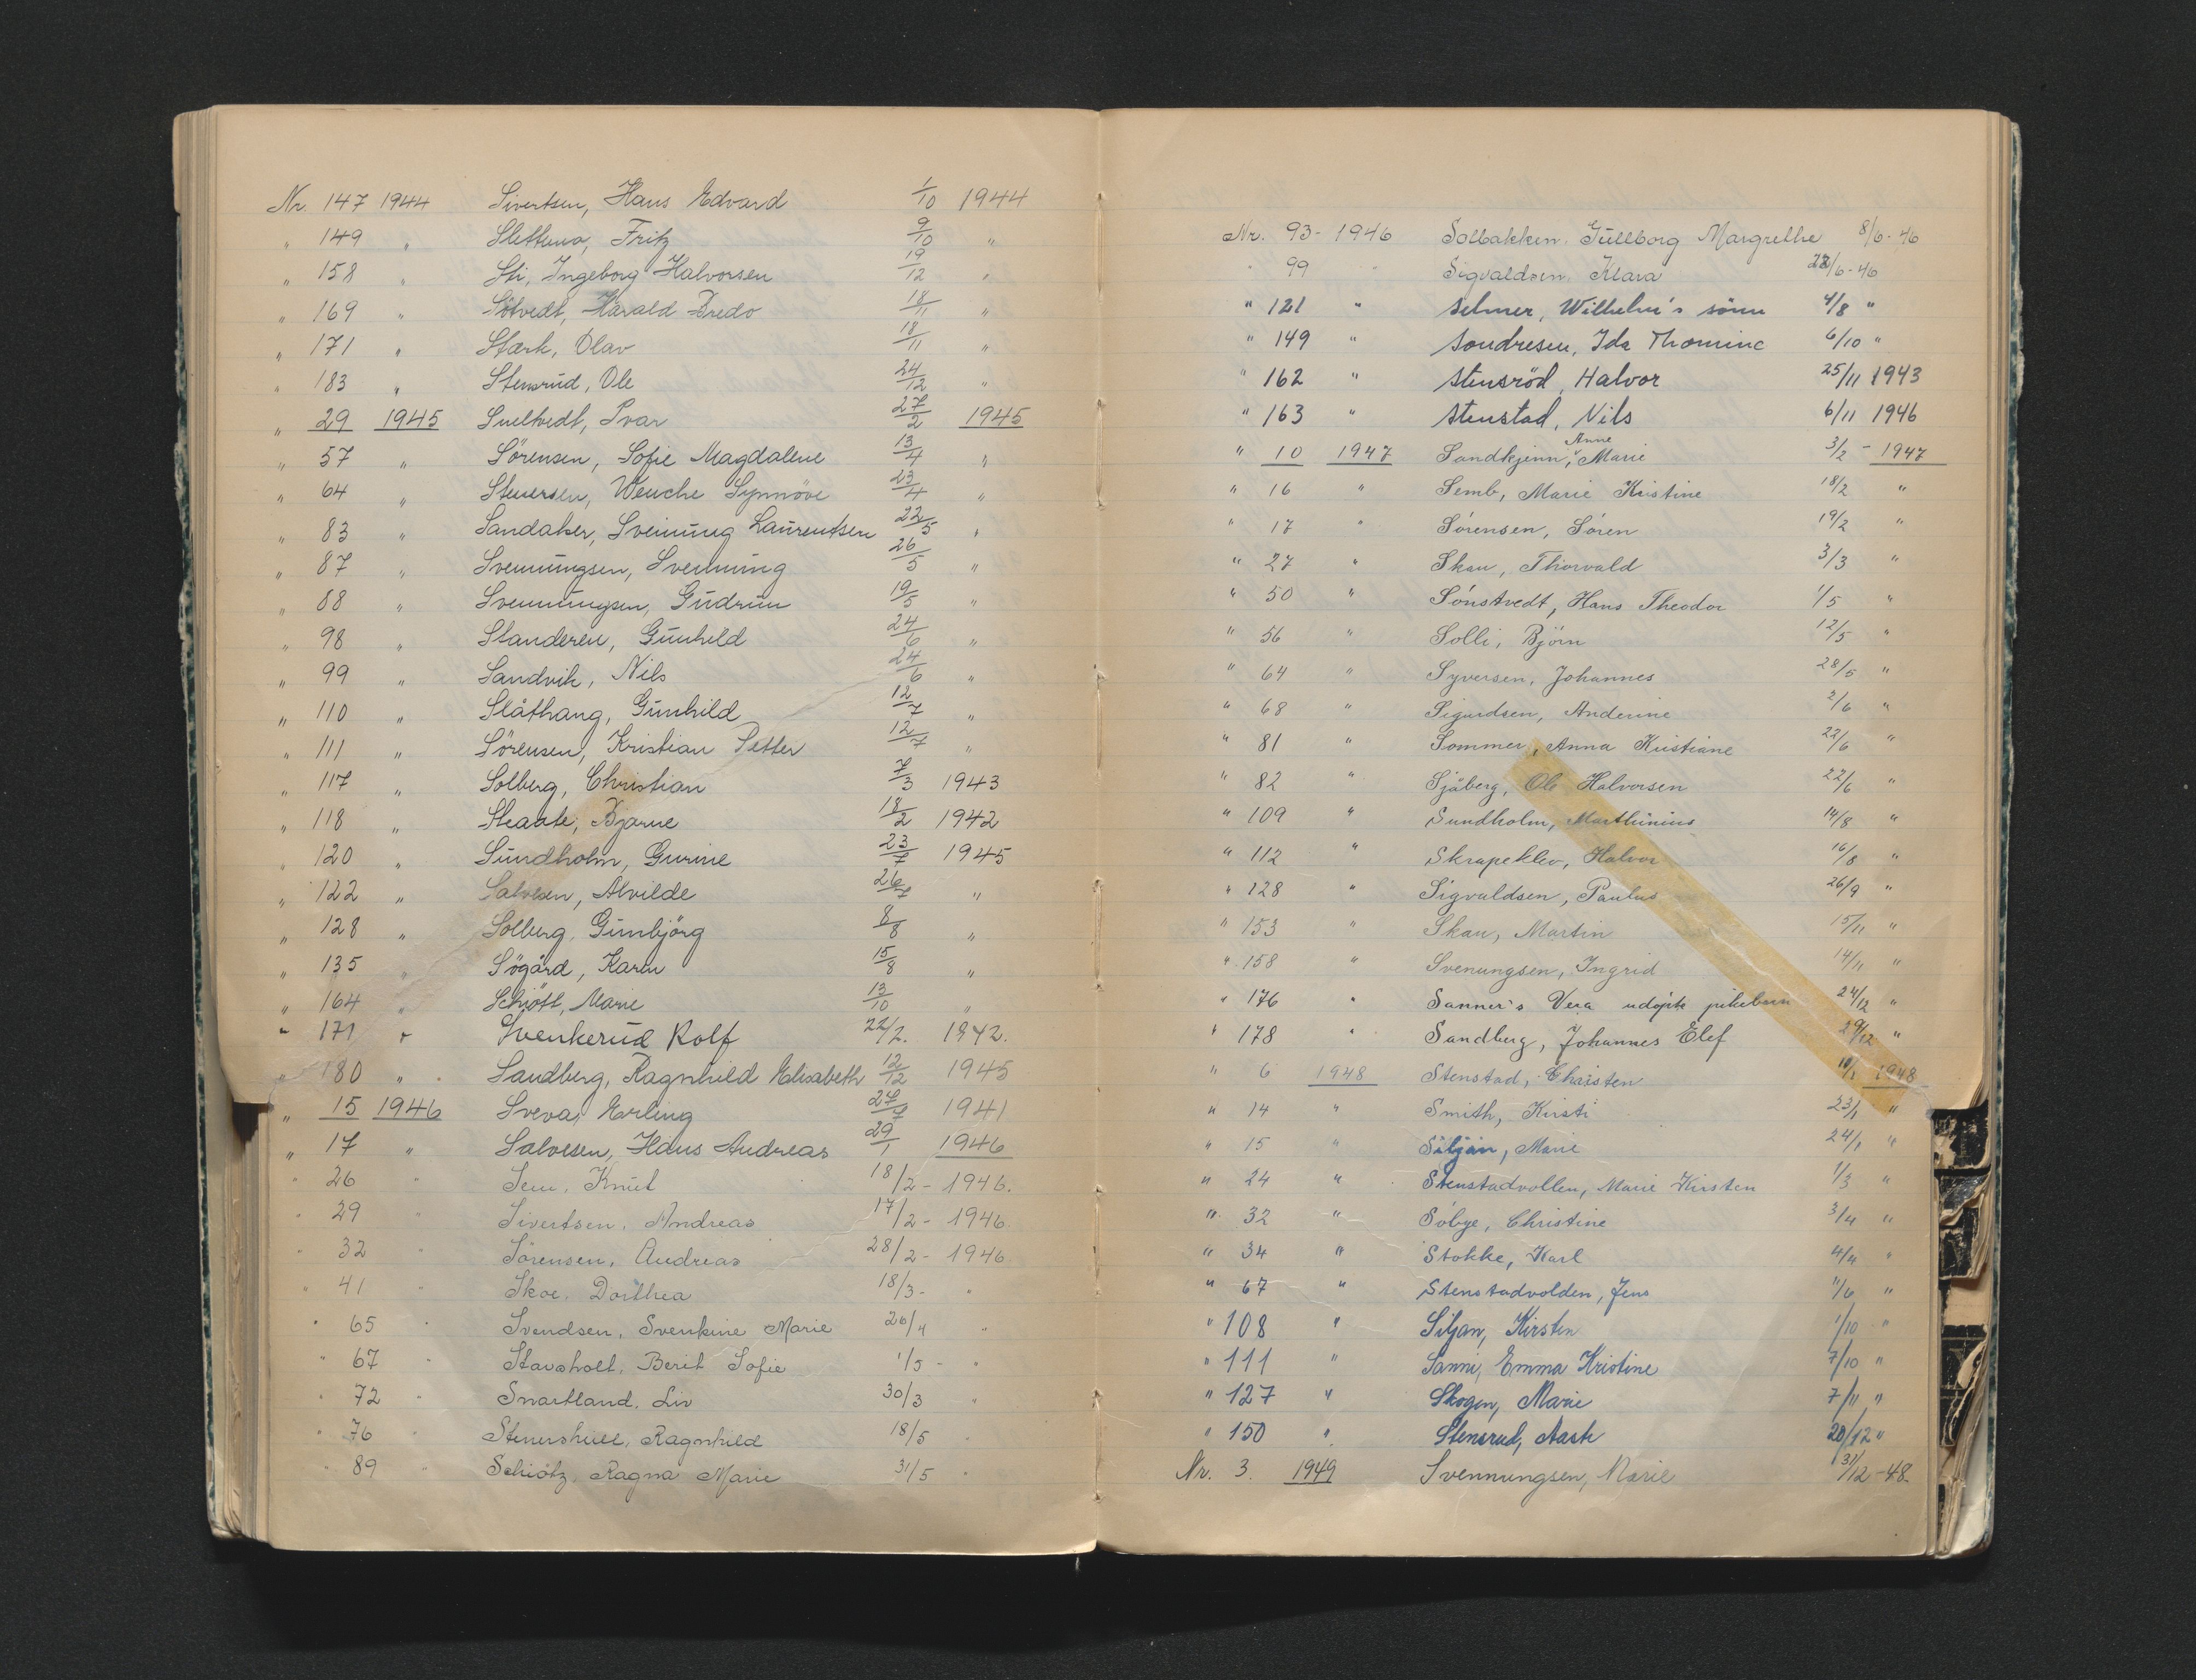 Nr. 147 1944 Sivertsen, Hans Edvard 1/10 1944
" 149 " Slettunø, Fritz 9/10 "
" 158 " Sti, Ingeborg Halvorsen 19/12 "
" 169 " Sötvedt, Harald Fredo 18/11 "
" 171 " Stærk, Olav 18/11 "
" 183 " Stensrud, Ole 24/12 "
" 29 1945 Sneltvedt, Ivar 27/2 1945
" 57 " Sörensen, Sofie Magdalene 13/4 "
" 64 " Stenersen, Wenche Synnöve 23/4 "
" 83 " Sandaker, Sveinung Laurentsen 22/5 "
" 87 " Svenningsen, Svenning 26/5 "
" 88 " Svennungsen, Gudrun 19/5 "
" 98 " Standeren, Gunhild 24/6 "
" 99 " Sandvik, Nils 24/6 "
" 110 " Slåthaug, Gunhild 12/7 "
" 111 " Sörensen, Kristian Petter 12/7 "
" 117 " Solberg, Christian 7/3 1943
" 118 " Skaate, Bjarne 18/2 1942
" 120 " Sundholm, Gurine 23/7 1945
" 122 " Salvesen, Alvilde 26/7 "
" 128 " Solberg, Gunbjörg 8/8 "
" 135 " Sögård, Karen 15/8 "
" 164 " Schjött, Marie 13/10 "
" 171 " Svenkerud Rolf 22/2. 1942.
" 180 " Sandberg, Ragnhild Elisabeth 12/12 1945
" 15 1946 Sveva, Erling 27/7 1941
" 17 " Salvesen, Hans Andreas 29/1 1946
" 26 " Sem, Knut 18/2 - 1946.
" 29 " Sivertsen, Andreas 17/2 - 1946.
" 32 " Sörensen, Andreas 28/2 - 1946.
" 41 " Skoe, Dorthea 18/3 - "
" 65 " Svendsen, Svenkine Marie 26/4 "
" 67 " Stavsholt, Berit Sofie 1/5 - "
" 72 " Snartland, Liv 30/3 "
" 76 " Stenershull, Ragnhild 18/5 "
" 89 " Schiötz, Ragna Marie 31/5 "
Nr. 93 - 1946 Solbakken, Gullborg Margrethe 8/6 - 46
" 99 " Sigvaldsen, Klara 22/6 - 46
" 121 " Selmer, Wilhelm's sönn 4/8 "
" 149 " Sondresen, Ida Thomine 6/10 "
" 162 " Stensröd, Halvor 25/11 1943
" 163 " Stenstad, Nils 6/11 1946
" 10 1947 Sandkjenn, Anne Marie 3/2 - 1947
" 16 " Semb, Marie Kristine 18/2 "
" 17 " Sörensen, Sören 19/2 "
" 27 " Skau, Thorvald 3/3 "
" 50 " Sönstvedt, Hans Theodor 1/5 "
" 56 " Solli, Björn 12/5 "
" 64 " Syversen, Johannes 28/5 "
" 68 " Sigurdsen, Anderine 2/6 "
" 81 " Sommer, Anna Kristiane 22/6 "
" 82 " Sjåberg, Ole Halvorsen 22/6 "
" 109 " Sundholm, Marthinius 14/8 "
" 112 " Skrapeklev, Halvor 16/8 "
" 128 " Sigvaldsen, Paulus 26/9 "
" 153 " Skau, Martin 15/11 "
" 158 " Svenungsen, Ingrid 14/11 "
" 176 " Sanner's Vera udöpte pikebarn 24/12 "
" 178 " Sandberg, Johannes Elef 29/12 "
" 6 1948 Stenstad, Christen 10/1 1948
" 14 " Smith, Kirsti 23/1 "
" 15 " Siljan, Marie 24/1 "
" 24 " Stenstadvollen, Marie Kirsten 1/3 "
" 32 " Söbye, Christine 3/4 "
" 34 " Stokke, Karl 4/4 "
" 67 " Stenstadvolden, Jens 11/6 "
" 108 " Siljan, Kirsten 1/10 "
" 111 " Sanni, Emma Kristine 7/10 "
" 127 " Skogen, Marie 7/11 "
" 150 " Stensrud, Aaste 20/12 "
Nr. 3. 1949 Svennungsen, Marie 31/12 - 48.